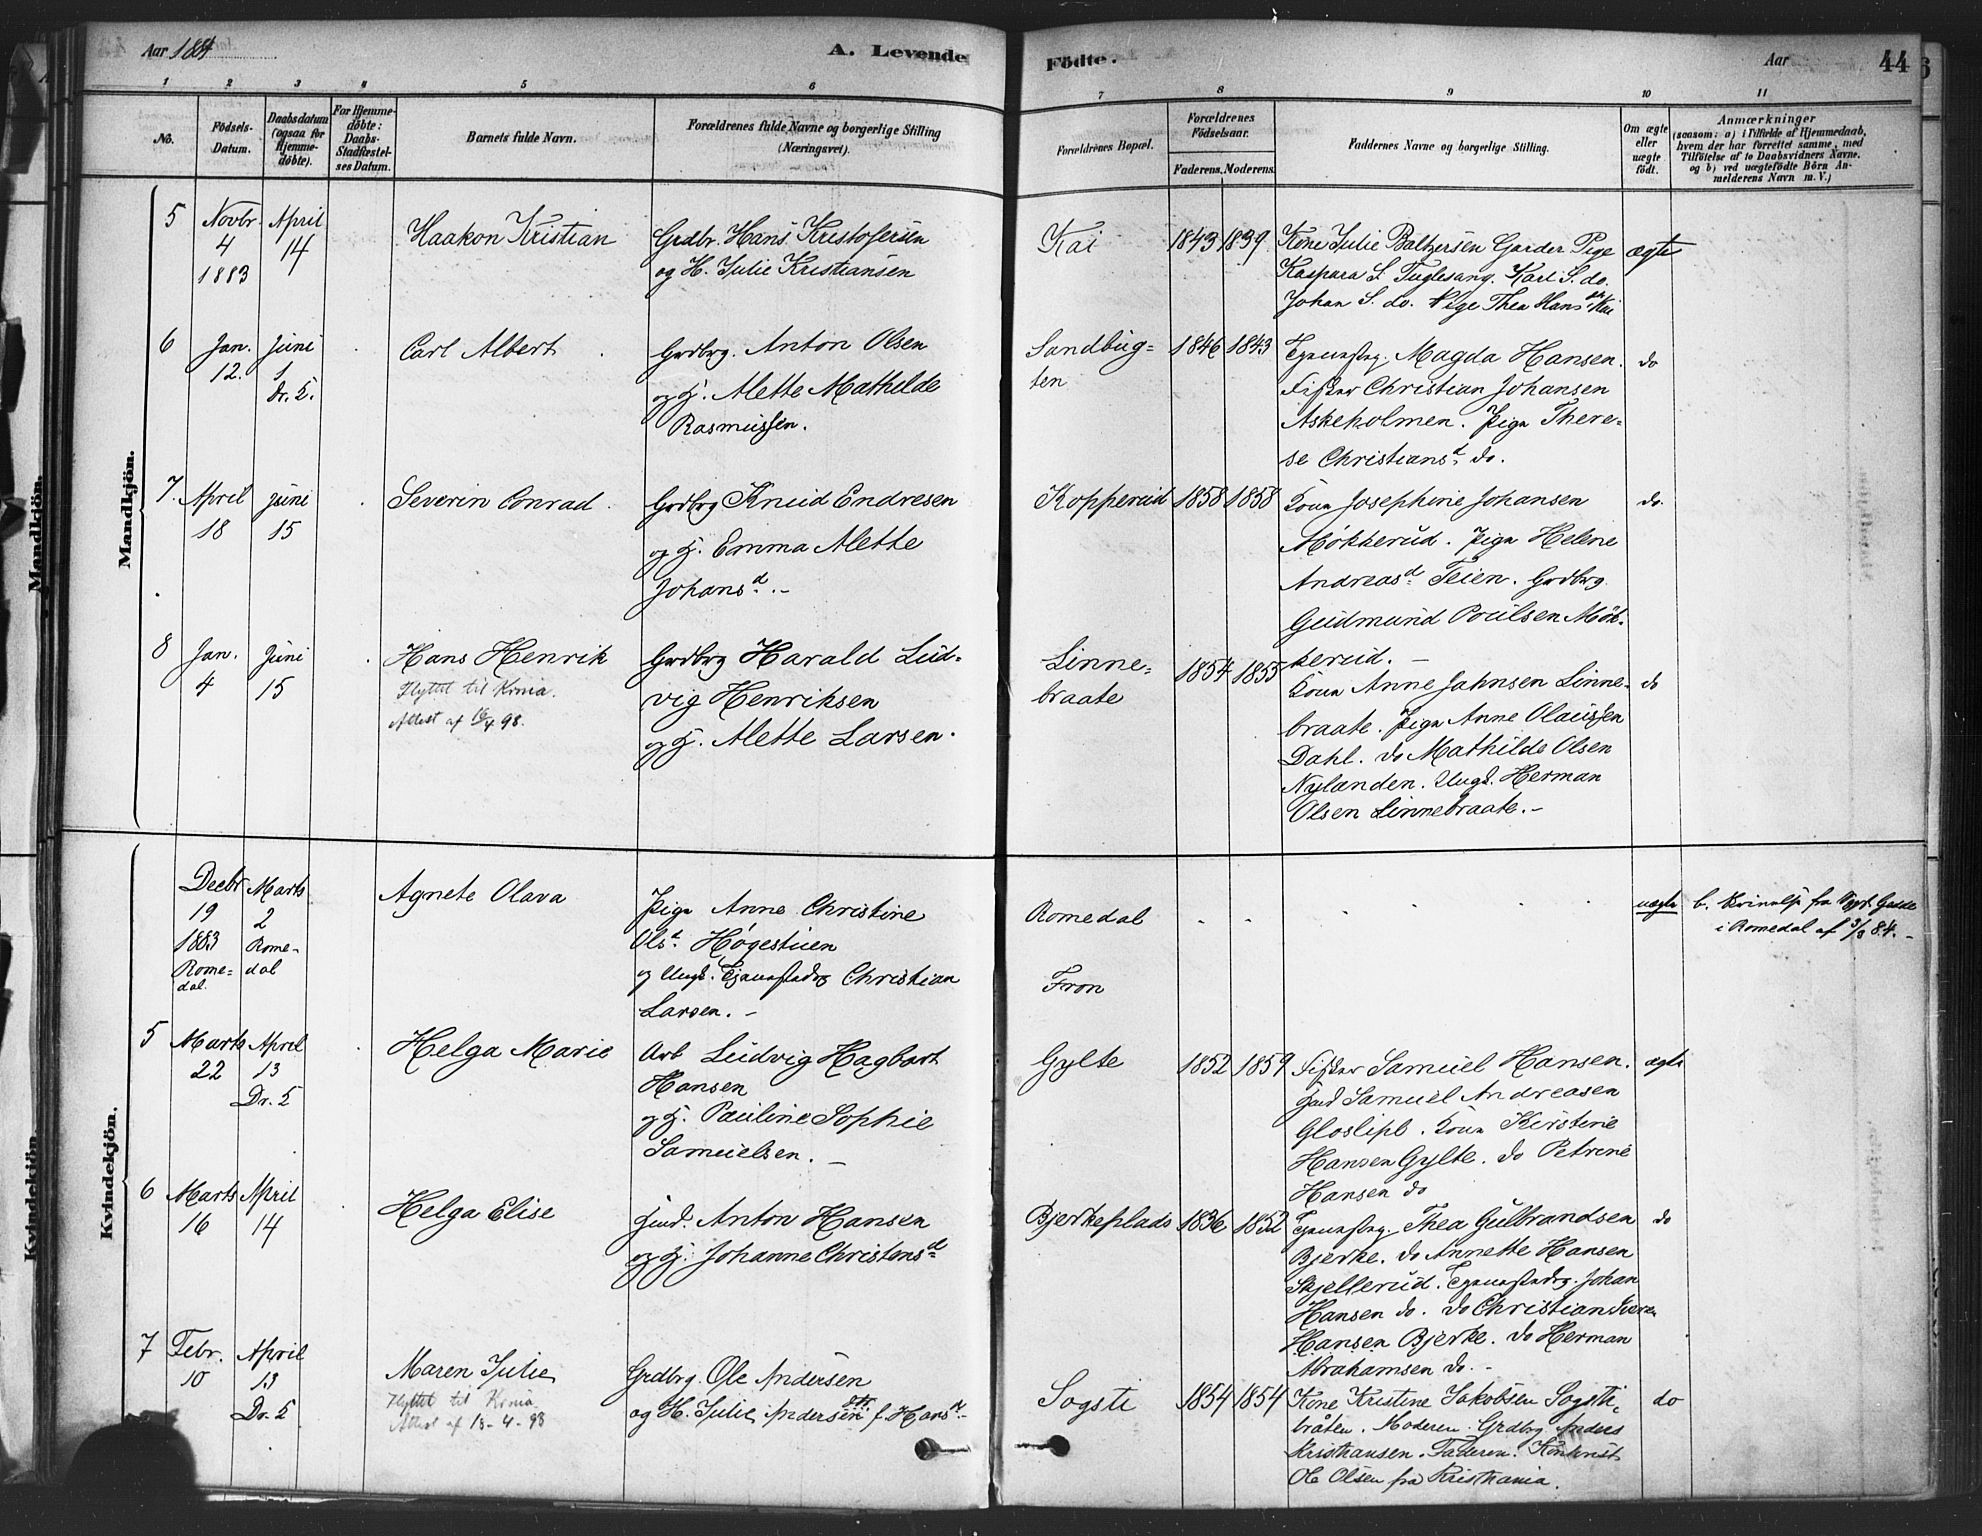 Aar 1884
A. Levende
Födte.
Aar
44
1 2 3 4 5 6 7 8 9 10 11
No.
Födsels-
Datum.
Daabsdatum
(ogsaa for
Hjemme-
döbte).
For Hjemme-
döbte:
Daabs-
Stadfæstel-
ses Datum.
Barnets fulde Navn.
Forældrenes fulde Navne og borgerlige Stilling
(Næringsvei).
Forældrenes Bopæl.
Forældrenes
Födselsaar.
Faderens. Moderens.
Faddernes Navne og borgerlige Stilling.
Om ægte
eller
uægte
födt.
Anmærkninger
(saasom: a) i Tilfælde af Hjemmedaab,
hvem der har forrettet samme, med
Tilföielse af to Daabsvidners Navne,
og b) ved uægtefödte Börn An-
melderens Navn m. V.)
Mandkjön.
5
Novbr
4
1883
April
14
Haakon Kristian
Grdbr. Hans Kristofersen
og H. Julie Kristiansen
Kai
1843 1839
Kone Julie Baltzersen Garder Pige
Kaspara S. Fuglesang. Karl S. do.
Johan S. do. Pige Thea Hansen Kai
ægte
6
Jan.
12.
Juni
1
Dr. 5.
Carl Albert
Grdbrg. Anton Olsen
og H. Alette Mathilde
Rasmussen.
Sandbug-
ten
1846 1843
Magda Hansen.
Fisker Christian Johansen
Askeholmen. Pige There-
se Christiansd. do.
do
7.
April
18
Juni
15
Severin Conrad.
Grdbrg Knud Endresen
og H. Emma Alette
Johansd. -
Kopperud
1858 1858
Kone Josephine Johansen
Møkkerud. Pige Helene
Andreasd. Teien. Grdbrg.
Gudmund Poulsen Møk-
kerud. -
do.
8
Jan.
4
Juni
15
Hans Henrik
Flyttet til Krnia.
Attest af 16/4 98.
Grdbrg Harald Lud-
vig Henriksen
og H. Alette Larsen.
Linne-
braate
1854 1855
Kone Anne Jahnsen Linne-
braate. Pige Anne Olaussen
Dahl. do Mathilde Olsen
Nylanden. Ungk. Herman
Olsen Linnebraate. -
do
Kvindekjön.
Decbr
19
1883
Rome-
dal.
Marts
2
Rome-
dal
Agnete Olava
Pige Anne Christine
Olsd. Høgestuen
og Ungk. Christian
Larsen. -
Romedal
Fron
uægte
b. fra Gjedde
i Romedal af 3/3 84. -
5
Marts
22
April
13
Dr. 5
Helga Marie
Arb Ludvig Hagbart
Hansen
og H. Pauline Sophie
Samuelsen. -
Gylte
1852 1859
Fisker Samuel Hansen.
Samuel Andreasen
Gloslipl. Kone Kirstine
Hansen Gylte. do Petrine
Hansen do
ægte
6
Marts
16
April
14
Helga Elise
Anton Hansen
og H. Johanne Christensd
Bjerkeplads
1836 1852
Thea Gulbrandsen
Bjerke. do Annette Hansen
Skjellerud. Johan
Hansen do. do Christian
Hansen Bjerke. do Herman
Abrahamsen do. -
do
7
Febr.
10
April
13
Dr. 5
Maren Julie
Flyttet til Krnia.
Attest af 18-4-98
Grdbrg. Ole Andersen
og H. Julie Andersen f. Hansd.
Sogsti
1854 1854
Kone Kristine Jakobsen Sogsti-
bråten. Moderen. Grdbrg Anders
Kristiansen. Faderen. Kontorist
Ole Olsen fra Kristiania.
do